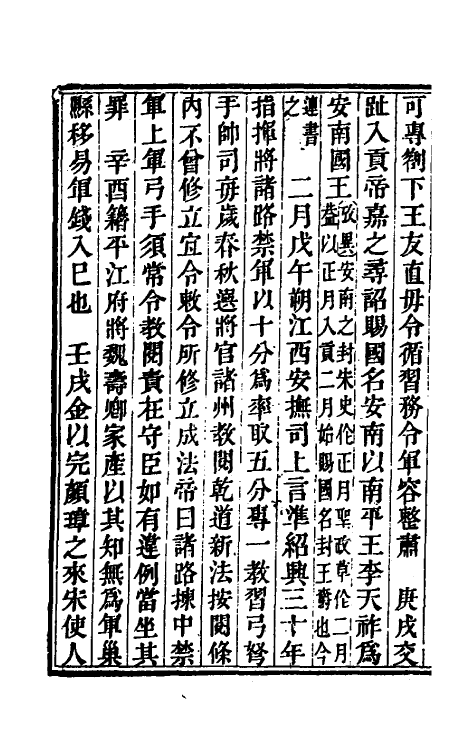 可專劄下王友直毋令循習務令軍容整肅　庚戌交
趾入貢帝嘉之尋詔賜國名安南以南平王李天祚爲
安南國王攷異安南之封朱史作正月聖政草作二月
葢以正月入貢二月始賜國名封王爵也今
連書
之　二月戊午朔江西安撫司上言準紹興三十年
指揮將諸路禁軍以十分爲率取五分專一教習弓弩
手帥司每歲春秋選將官諸州教閱乾道新法按閱條
內不曾修立宜令敕令所修立成法帝曰諸路揀中禁
軍上軍弓手須常令教閱責在守臣如有違例當坐其
罪　辛酉籍平江府將魏壽卿家產以其知無爲軍巢
縣移易軍錢入巳也　壬戌金以完顏璋之來朱使人